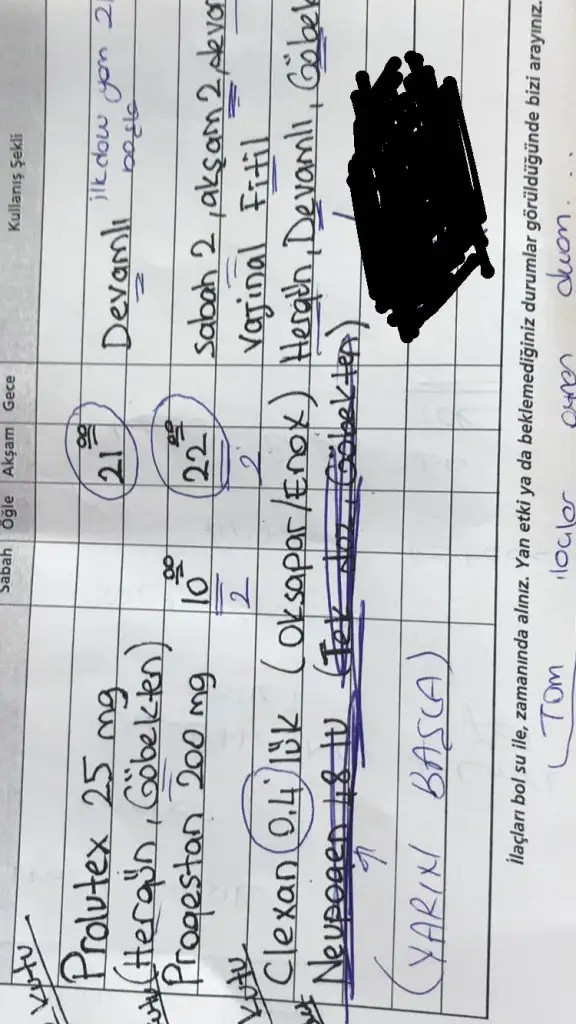 Sabah Öğle Akşam Gece Kullanış Şekli
kutu Prolutex 25 mg 21⁰⁰ Devamlı ilk
(Hergün, Göbekten)
Progestan 200 mg 10⁰⁰ 22⁰⁰ sabah 2, akşam 2, devam
2 2 Vajinal Fitil
kutu Clexan 0.4'lük (Oksapar/Enox) Hergün, Devamlı, Göbek
Neupogen 48 IU (Tek doz, Göbekten)
(YARIN BAŞLA)
İlaçları bol su ile, zamanında alınız. Yan etki ya da beklemediğiniz durumlar görüldüğünde bizi arayınız.
Tüm ilaçlar